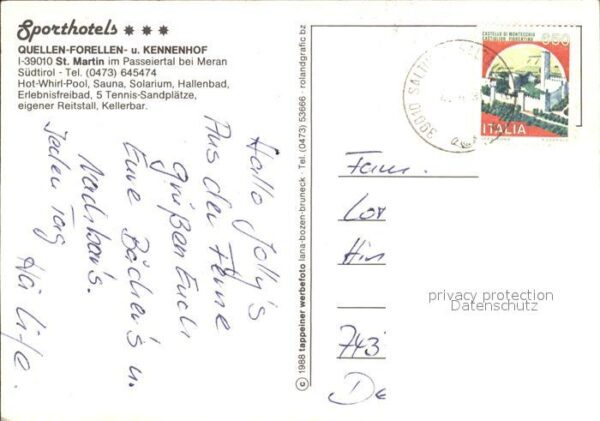 Sporthotels ✱ ✱ ✱
QUELLEN-FORELLEN- u. KENNENHOF
I-39010 St. Martin im Passeiertal bei Meran
Südtirol - Tel. (0473) 645474
Hot-Whirl-Pool, Sauna, Solarium, Hallenbad,
Erlebnisfreibad, 5 Tennis-Sandplätze,
eigener Reitstall, Kellerbar.
Hallo Jolly's
Aus der Ferne
grüßen Euch
Eure Bächer's u.
Nachbar's.
Jeden Tag
© 1988 tappeiner werbefoto lana-bozen-bruneck · Tel. (0473) 53666 · rolandgrafic bz
CASTELLO DI MONTECCHIO
CASTIGLION FIORENTINO
650
ITALIA
39010
Fam.
Lor
Hin
743
De
privacy protection
Datenschutz